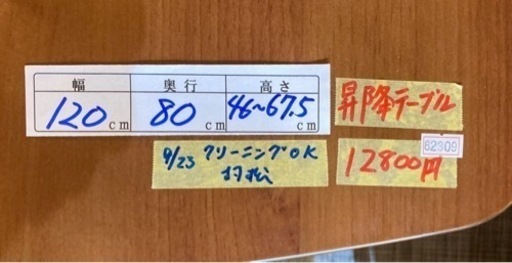 幅 奥行 高さ
120cm 80cm 46~67.5cm
昇降テーブル
9/23 クリーニングOK
12800円
82309